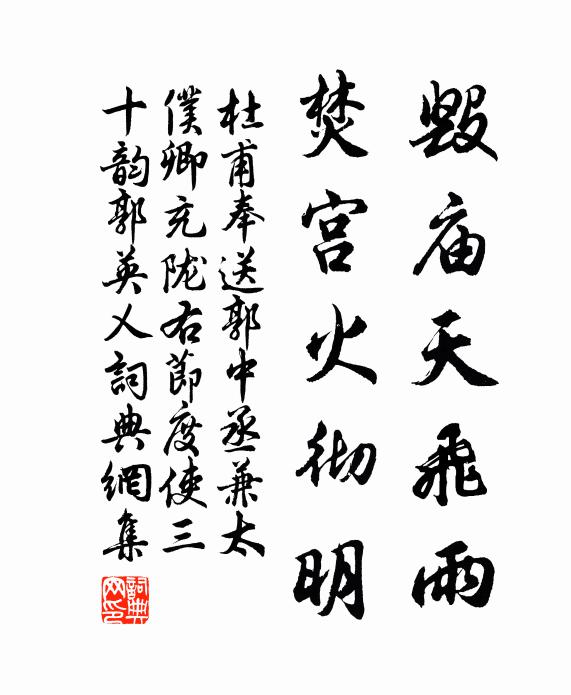 毁庙天飛雨
焚宫火彻明
杜甫奉送郭中丞兼太
僕卿充陇右節度使三
十韵郭英乂詞典網集
詞典
网印